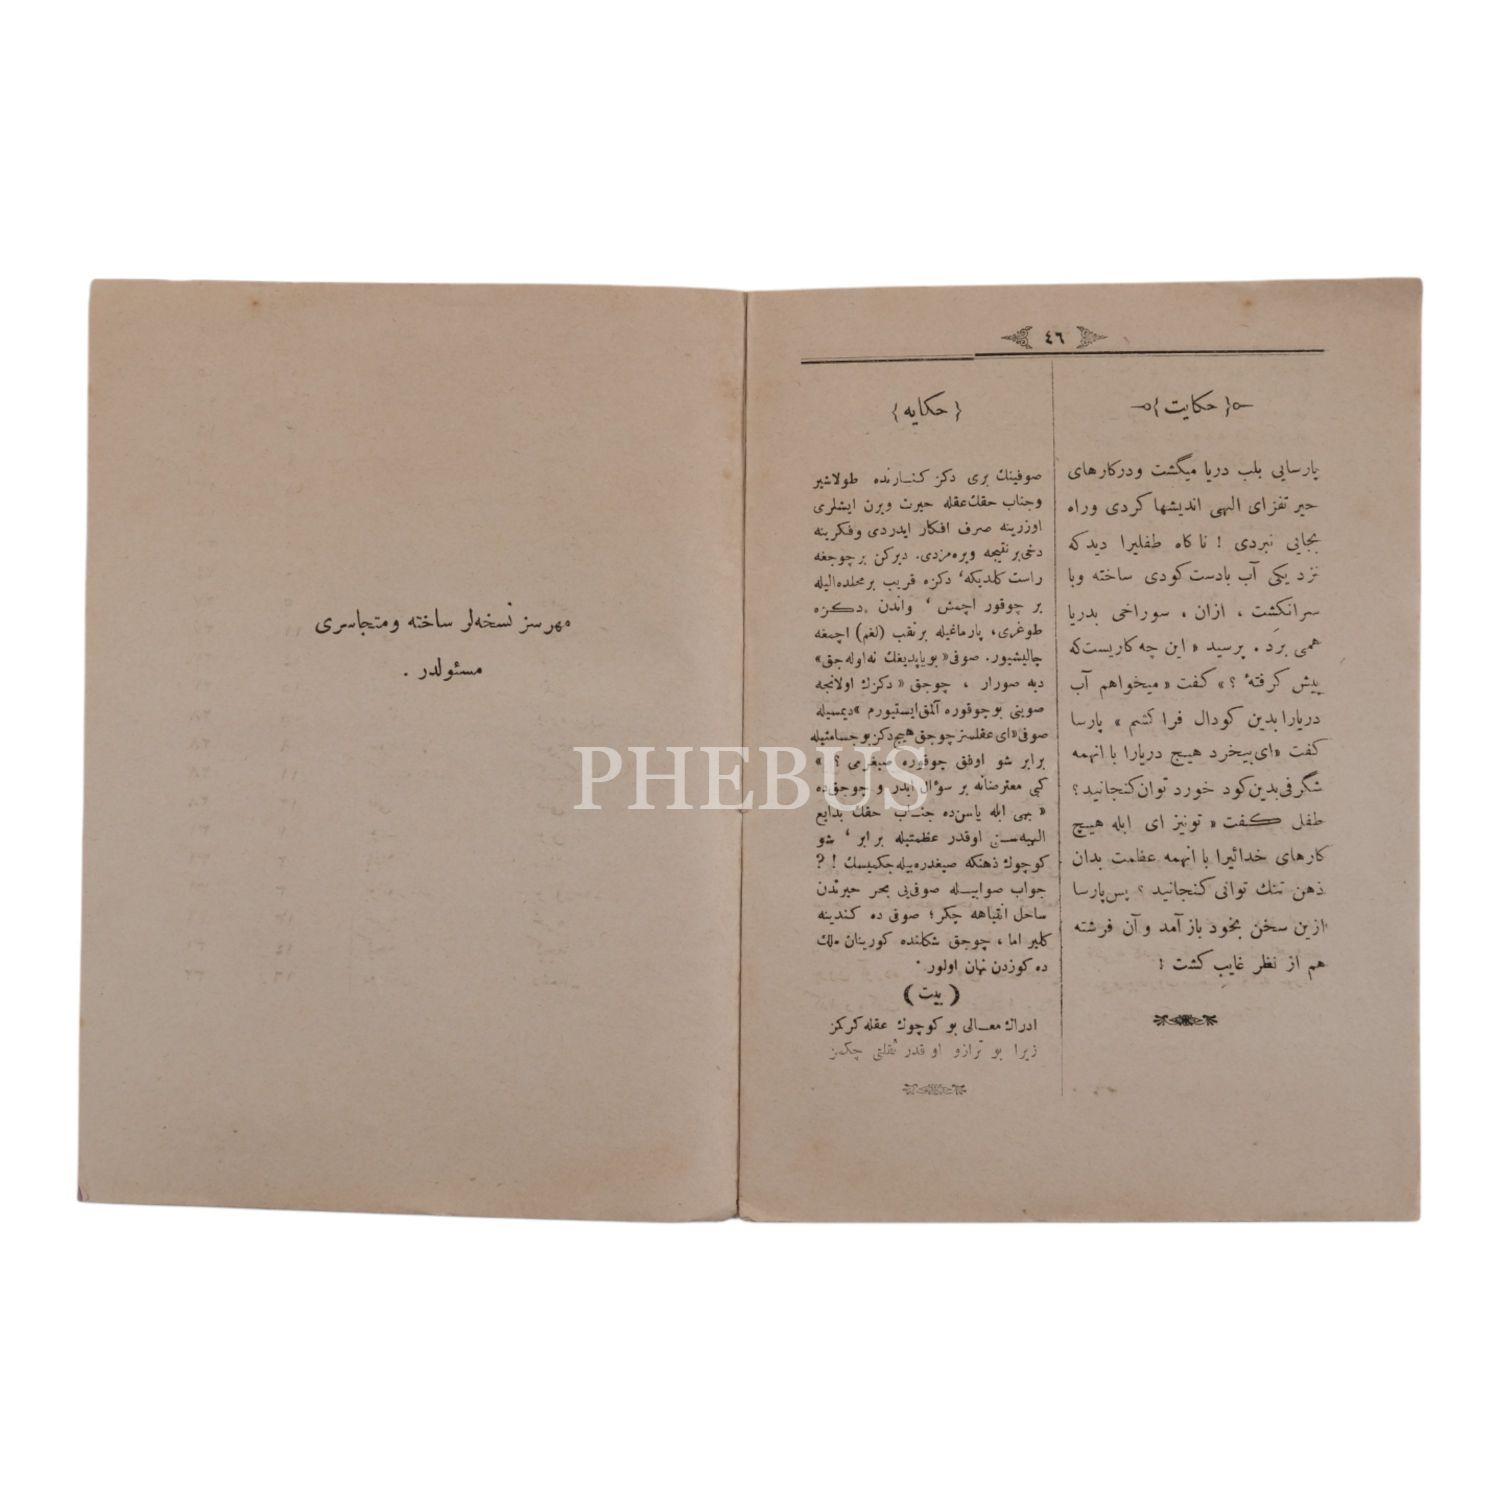 ٤٦
﴿ حكايت ﴾
پارسايى بلب دريا ميگشت ودركارهاى
حيرتفزاى الهى انديشها كردى وراه
بجايى نبردى ! ناكاه طفليرا ديدكه
نزديكى آب بادست كودى ساخته وبا
سرانكشت ، ازان ، سوراخى بدريا
همى برد . پرسيد « اين چه كاريست كه
پيش كرفتۀ ؟ » كفت « ميخواهم آب
دريارا بدين كودال فرا كشم » پارسا
كفت «اى بيخرد هيچ دريارا با اينهمه
شگرفى بدين كود خورد توان كنجانيد ؟
طفل كفت « تونيز اى ابله هيچ
كارهاى خدائيرا با اينهمه عظمت بدان
ذهن تنك توانى كنجانيد ؟ پس پارسا
ازين سخن بخود باز آمد و آن فرشته
هم از نظر غايب كشت !
{ حكايه }
صوفينك برى دكز كنارنده طولاشير
وجناب حقك عقله حيرت ويرن ايشلرى
اوزرينه صرف افكار ايدردى وفكرينه
دخى بر نتيجه ويره مزدى . ديركن برچوجغه
راست كلديكه ، دكزه قريب برمحلده اليله
بر چوقور اچمش ، واندن دكزه
طوغرى ، پارماغيله برنقب (لغم) اچمغه
چاليشيور . صوفى «بو ياپديغك نه اوله جق»
ديه صورار ، چوجق « دكزك اولانجه
صوينى بوچوقوره آلمق ايستيورم » ديمسيله
صوفى «اى عقلسز چوجق هيچ دكز بوجسامتيله
برابر شو اوفق چوقوره صيغرمى ؟ »
كبى معترضانه بر سؤال ايدر و چوجق ده
« بهى ابله ياسن ده جناب حقك بدايع
الهيه سنى اوقدر عظمتيله برابر ، شو
كوچوك ذهنكه صيغدره بيله جكميسك ! ؟
جواب صوابيله صوفى يى بحر حيرتدن
ساحل انتباهه چكر ؛ صوفى ده كندينه
كلير اما ، چوجق شكلنده كورينان ملك
ده كوزدن نهان اولور .
( بيت )
ادراك معالى بو كوچوك عقله كركمز
زيرا بو ترازو او قدر ثقلتى چكمز
مهرسز نسخه لر ساخته ومتجاسرى
مسئولدر .
PHEBUS